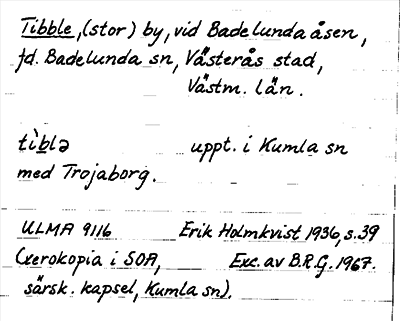 Tibble, (stor) by, vid Badelundaåsen,
fd. Badelunda sn, Västerås stad,
Västm. län.
tìblə uppt. i Kumla sn
med Trojaborg.
ULMA 9116 Erik Holmkvist 1936, s.39
(xerokopia i SOA, Exc. av B.R.G. 1967.
särsk. kapsel, Kumla sn).